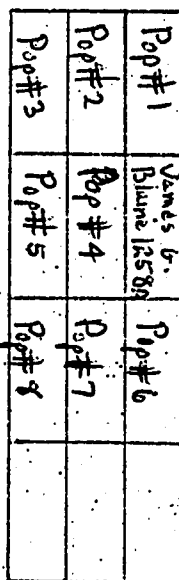 Pop#1
James G.
Blaine
Pop#6
Pop#2
Pop #4
Pop#7
Pop#3
Pop#5
Pop#8